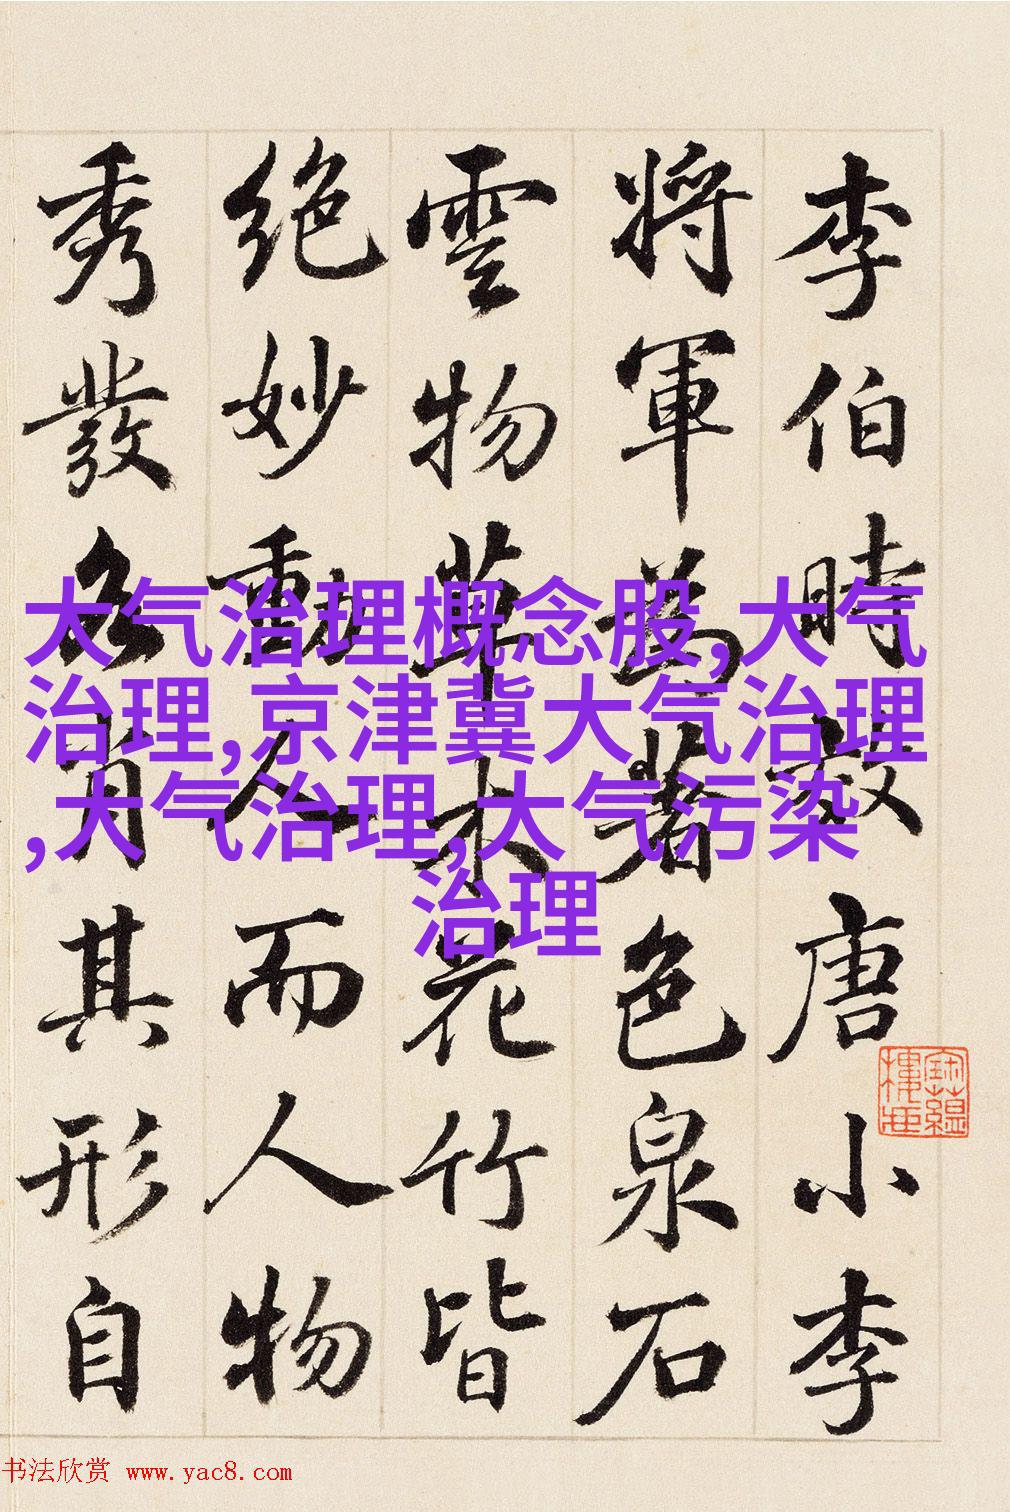 李伯時效唐小李
將軍為著色泉石
雲物草木花竹皆
絕妙動人而人物
秀發各肖其形自
大气治理概念股,大气
治理,京津冀大气治理
,大气治理,大气污染
治理
书法欣赏 www.yac8.com